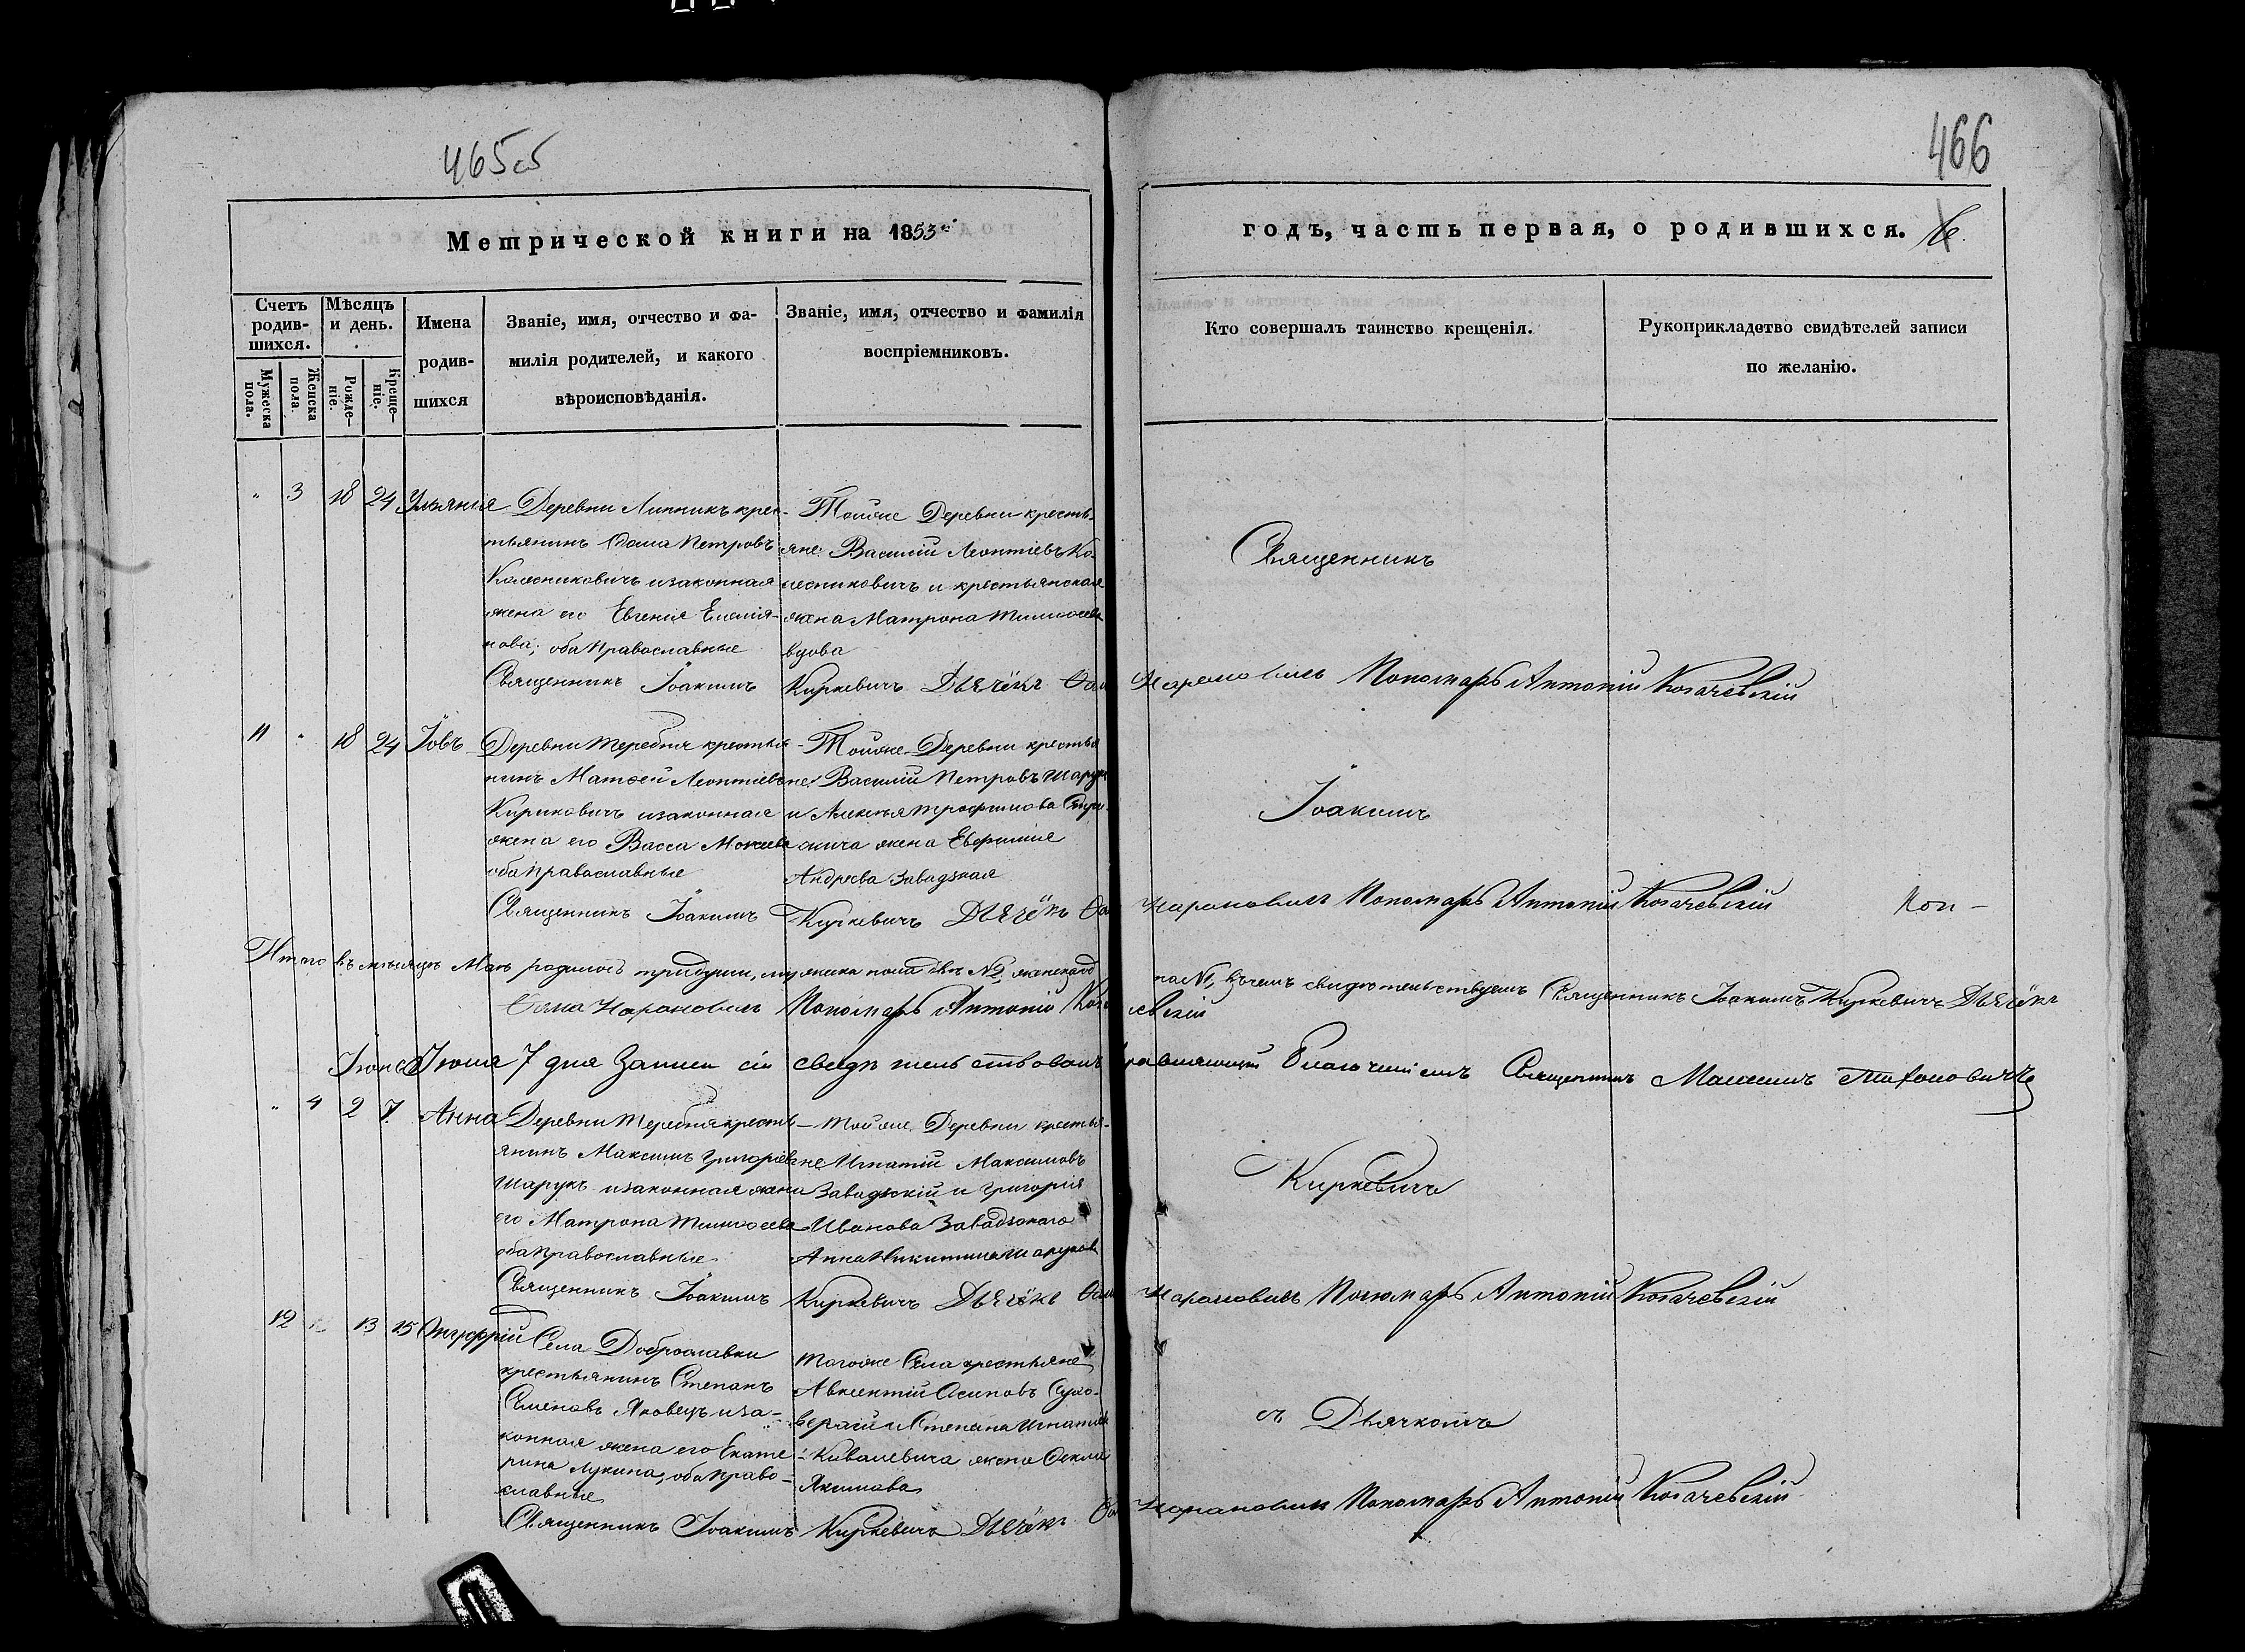 465об
466
Метрической книги на 1853й
годъ, часть первая, о родившихся.
Счетъ родив-
шихся.
Мужеска пола.
Женска пола.
Мѣсяцъ и день.
Рожде-
ніе.
Креще-
ніе.
Имена
родив-
шихся
Званіе, имя, отчество и фа-
милія родителей, и какого
вѣроисповѣданія.
Званіе, имя, отчество и фамилія
воспріемниковъ.
Кто совершалъ таинство крещенія.
Рукоприкладство свидѣтелей записи
по желанію.
" 3 18 24 Ульянія
Деревни Липникъ крес-
тьянинъ Фома Петровъ
Колесниковичъ изаконная
жена его Евгенія Емелія-
нова; оба православные
Тойже Деревни кресть-
яне: Василій Леонтіевъ Ко-
лесниковичъ и крестьянская
жена Матрона Тимофеева
вдова
Священникъ
Священникъ Іоакимъ Киркевичъ Дьячёкъ Пономарь Антоній
11 " 18 24 Іовъ
Деревни Теребня крестья-
нинъ Матфей Леонтіевъ
Кириковичъ изаконная
жена его Васса Мокиева
оба православные
Тойже Деревни крестья
не: Василій Петровъ Шарук
и Алексея Трофимова
жена Евфимія
Андреева Завадзкая
Іоакимъ
Священникъ Іоакимъ Киркевичъ Дьячёкъ Пономарь Антоній
Коп-
Итого въ мѣсяцѣ Маѣ родилось
вчемъ свидѣтельствуемъ Священникъ Іоакимъ Киркевичъ Дьячёкъ
Пономарь Антоній
Іюнь
Іюня 7 дня Записи сіи свидѣтельствовалъ Благочиніемъ Священникъ Максимъ Тихоновичъ
" 4 2 7. Анна
Деревни Теребня кресть-
янинъ Максимъ Григоріевъ
Шарукъ изаконная жена
его Матрона Тимофеева
оба православные
Тойже Деревни крестья-
не Игнатій Максимовъ
Завадзкій и Григорія
Иванова Завадзкого
Анна Никитина
Киркевичъ
Священникъ Іоакимъ Киркевичъ Дьячёкъ Пономарь Антоній
12 13 15 Онуфрій
Села Доброславки
крестьянинъ Степанъ
Семеновъ Яковецъ иза-
конная жена его Екате-
рина Лукина, оба право-
славные
Тогоже Села крестьяне
Авксентій Осиповъ Сухо-
и Степана Игнатіева
Ковалевича жена Фекла
Якимова
съ Дьячкомъ
Священникъ Іоакимъ Киркевичъ Дьячёкъ Пономарь Антоній